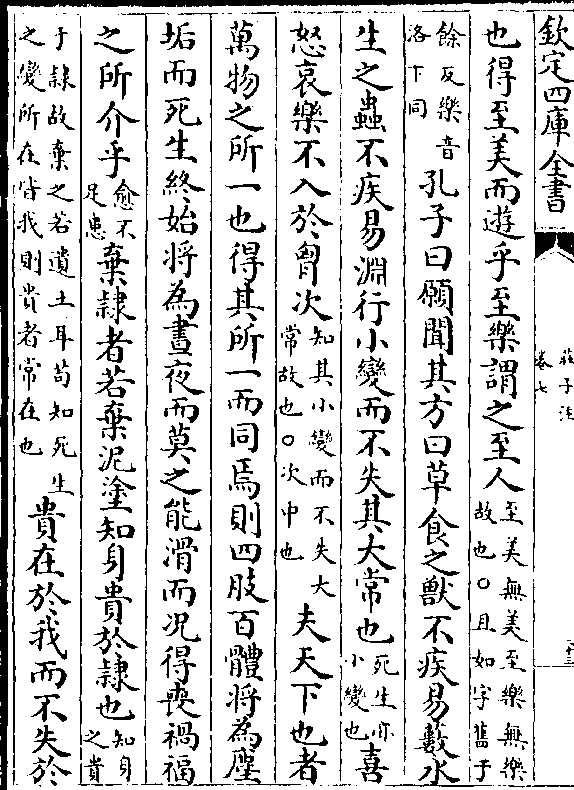 欽定四庫全書
莊子注
卷七
也得至美而遊乎至樂謂之至人至美無美至樂無樂故也○且如字舊子
餘反樂音洛下同孔子曰願聞其方曰草食之獸不疾易藪水
生之蟲不疾易淵行小變而不失其大常也死生亦小變也喜
怒哀樂不入於胷次知其小變而不失大常故也○次中也夫天下也者
萬物之所一也得其所一而同焉則四肢百體將為塵
垢而死生終始將為晝夜而莫之能滑而况得喪禍福
之所介乎愈不足患棄隸者若棄泥塗知身貴於隸也知身之貴
于隸故棄之若遺土耳苟知死生之變所在皆我則貴者常在也貴在於我而不失於